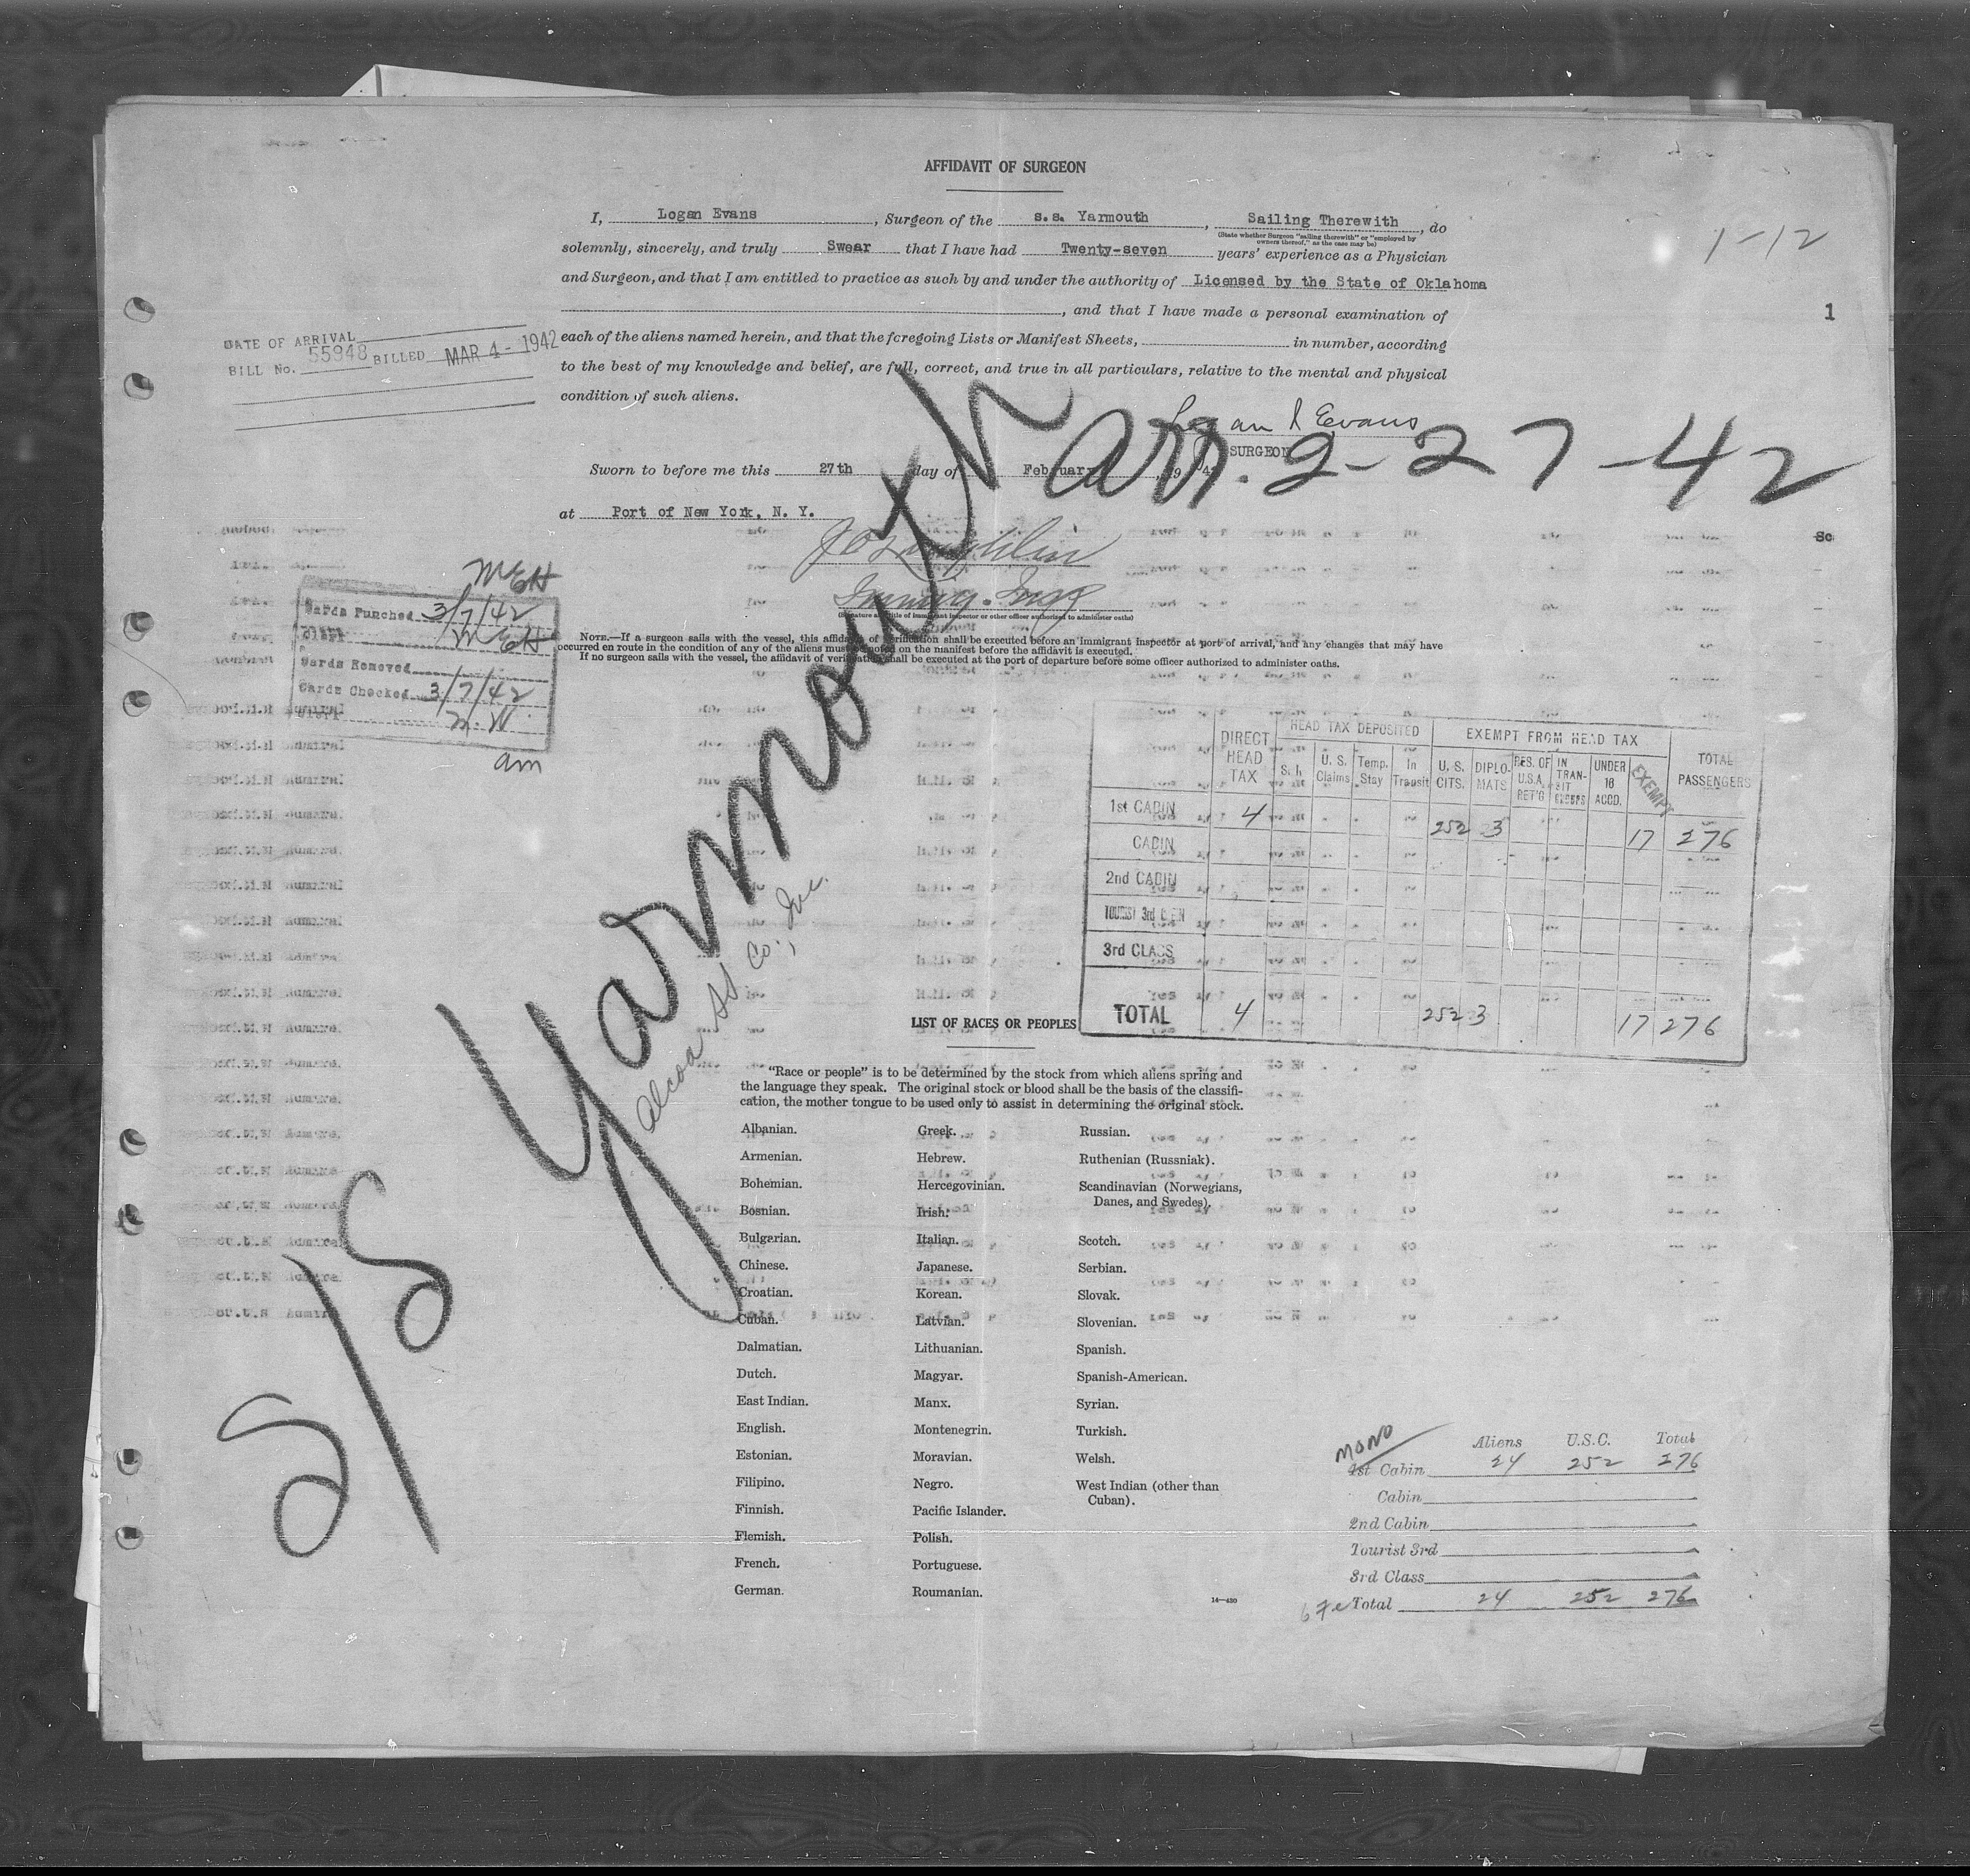 AFFIDAVIT OF SURGEON
I, Logan Evans, Surgeon of the s.s. Yarmouth, Sailing Therewith, do
(State whether Surgeon "sailing therewith" or "employed by owners thereof," as the case may be)
solemnly, sincerely, and truly Swear that I have had Twenty-seven years' experience as a Physician
and Surgeon, and that I am entitled to practice as such by and under the authority of Licensed by the State of Oklahoma
, and that I have made a personal examination of
each of the aliens named herein, and that the foregoing Lists or Manifest Sheets, in number, according
to the best of my knowledge and belief, are full, correct, and true in all particulars, relative to the mental and physical
condition of such aliens.
1-12
1
DATE OF ARRIVAL
BILL No. 55948 BILLED MAR 4 - 1942
Logan Evans
SURGEON
Sworn to before me this 27th day of February
at Port of New York, N. Y.
Arr. 2-27-42
Immig. Insp
(Signature and title of immigrant inspector or other officer authorized to administer oaths)
NOTE.—If a surgeon sails with the vessel, this affidavit of verification shall be executed before an Immigrant Inspector at port of arrival, and any changes that may have
occurred en route in the condition of any of the aliens must be noted on the manifest before the affidavit is executed.
If no surgeon sails with the vessel, the affidavit of verification shall be executed at the port of departure before some officer authorized to administer oaths.
MEH
Cards Punched 3/7/42
Clerk MEH
Cards Removed
Cards Checked 3/7/42
Clerk M.W.
am
S/S Yarmouth
Alcoa SS Co., Inc.
DIRECT HEAD TAX
HEAD TAX DEPOSITED
EXEMPT FROM HEAD TAX
TOTAL PASSENGERS
S. I. U. S. Claims Temp. Stay In Transit U. S. CITS. DIPLOMATS RES. OF U.S.A. RET'G IN TRANSIT UNDER 16 ACCD. EXEMPT
1st CABIN 4 252 3 17 276
CABIN
2nd CABIN
TOURIST 3rd
3rd CLASS
TOTAL 4 252 3 17 276
LIST OF RACES OR PEOPLES
"Race or people" is to be determined by the stock from which aliens spring and
the language they speak. The original stock or blood shall be the basis of the classifi-
cation, the mother tongue to be used only to assist in determining the original stock.
Albanian.
Armenian.
Bohemian.
Bosnian.
Bulgarian.
Chinese.
Croatian.
Cuban.
Dalmatian.
Dutch.
East Indian.
English.
Estonian.
Filipino.
Finnish.
Flemish.
French.
German.
Greek.
Hebrew.
Hercegovinian.
Irish.
Italian.
Japanese.
Korean.
Latvian.
Lithuanian.
Magyar.
Manx.
Montenegrin.
Moravian.
Negro.
Pacific Islander.
Polish.
Portuguese.
Roumanian.
Russian.
Ruthenian (Russniak).
Scandinavian (Norwegians,
Danes, and Swedes).
Scotch.
Serbian.
Slovak.
Slovenian.
Spanish.
Spanish-American.
Syrian.
Turkish.
Welsh.
West Indian (other than
Cuban).
14—430
MONO
Aliens U.S.C. Total
1st Cabin 24 252 276
Cabin
2nd Cabin
Tourist 3rd
3rd Class
Total 24 252 276